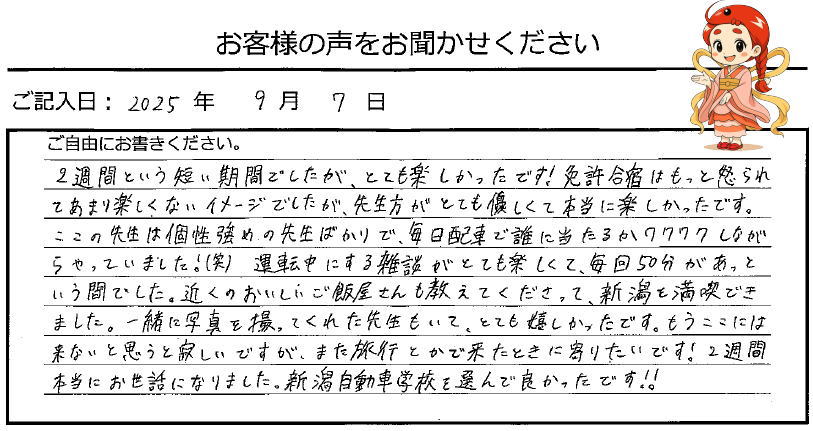 お客様の声をお聞かせください
ご記入日： 2025 年 9 月 7 日
ご自由にお書きください。
2週間という短い期間でしたが、とても楽しかったです！免許合宿はもっと怒られ
てあまり楽しくないイメージでしたが、先生方がとても優しくて本当に楽しかったです。
ここの先生は個性強めの先生ばかりで、毎日配車で誰に当たるかワクワクしなが
らやっていました！(笑) 運転中にする雑談がとても楽しくて、毎回50分があっと
いう間でした。近くのおいしいご飯屋さんも教えてくださって、新潟を満喫でき
ました。一緒に写真を撮ってくれた先生もいて、とても嬉しかったです。もうここには
来ないと思うと寂しいですが、また旅行とかで来たときに寄りたいです！2週間
本当にお世話になりました。新潟自動車学校を選んで良かったです！！